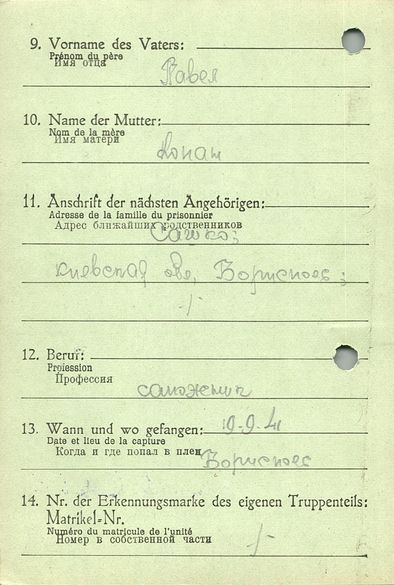 9. Vorname des Vaters:
Prénom du père
Имя отца
Павел
10. Name der Mutter:
Nom de la mère
Имя матери
11. Anschrift der nächsten Angehörigen:
Adresse de la famille du prisonnier
Адрес ближайших родственников
Сашко;
киевская обл, Борисполь;
-/-
12. Beruf:
Profession
Профессия
сапожник
13. Wann und wo gefangen:
Date et lieu de la capture
Когда и где попал в плен
Борисполь
14. Nr. der Erkennungsmarke des eigenen Truppenteils:
Matrikel-Nr.
Numéro du matricule de l'unité
Номер в собственной части
-/-